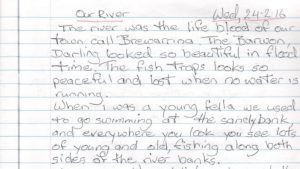 Our River
Wed, 24-2-16
The river was the life blood of our
town call Brewarrina. The Barwon,
Darling looked so beautiful in flood
time. The fish traps looks so
peaceful and lost when no water is
running.
When I was a young fella we used
to go swimming at the sandybank,
and everywhere you look you see lots
of young and old, fishing along both
sides of the river banks.